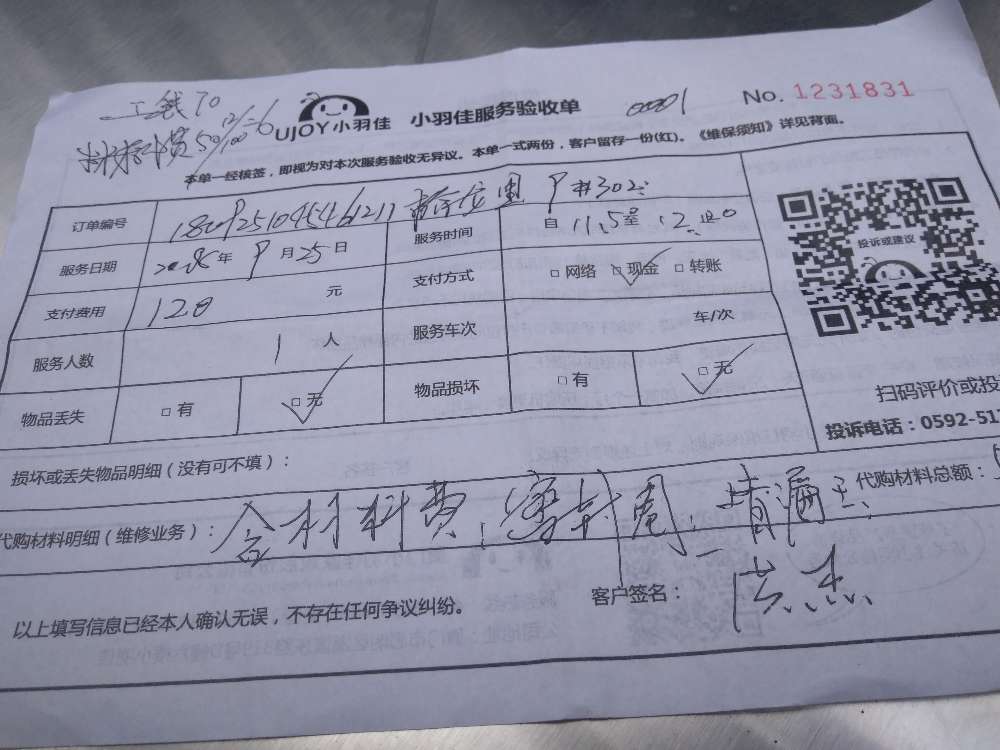 工钱70
材料费50
UJOY小羽佳 小羽佳服务验收单 No. 1231831
本单一经核签，即视为对本次服务验收无异议。本单一式两份，客户留存一份(红)。《维保须知》详见背面。
订单编号
服务日期 2018年 9月25日 服务时间 自 11.5至 12
支付费用 120 元 支付方式 □网络 □现金 □转账
投诉或建议
服务人数 1 人 服务车次 车/次
物品丢失 □有 □无 物品损坏 □有 □无
扫码评价或投
投诉电话：0592-51
损坏或丢失物品明细（没有可不填）：
代购材料明细（维修业务）： 含材料费 代购材料总额：
以上填写信息已经本人确认无误，不存在任何争议纠纷。 客户签名：